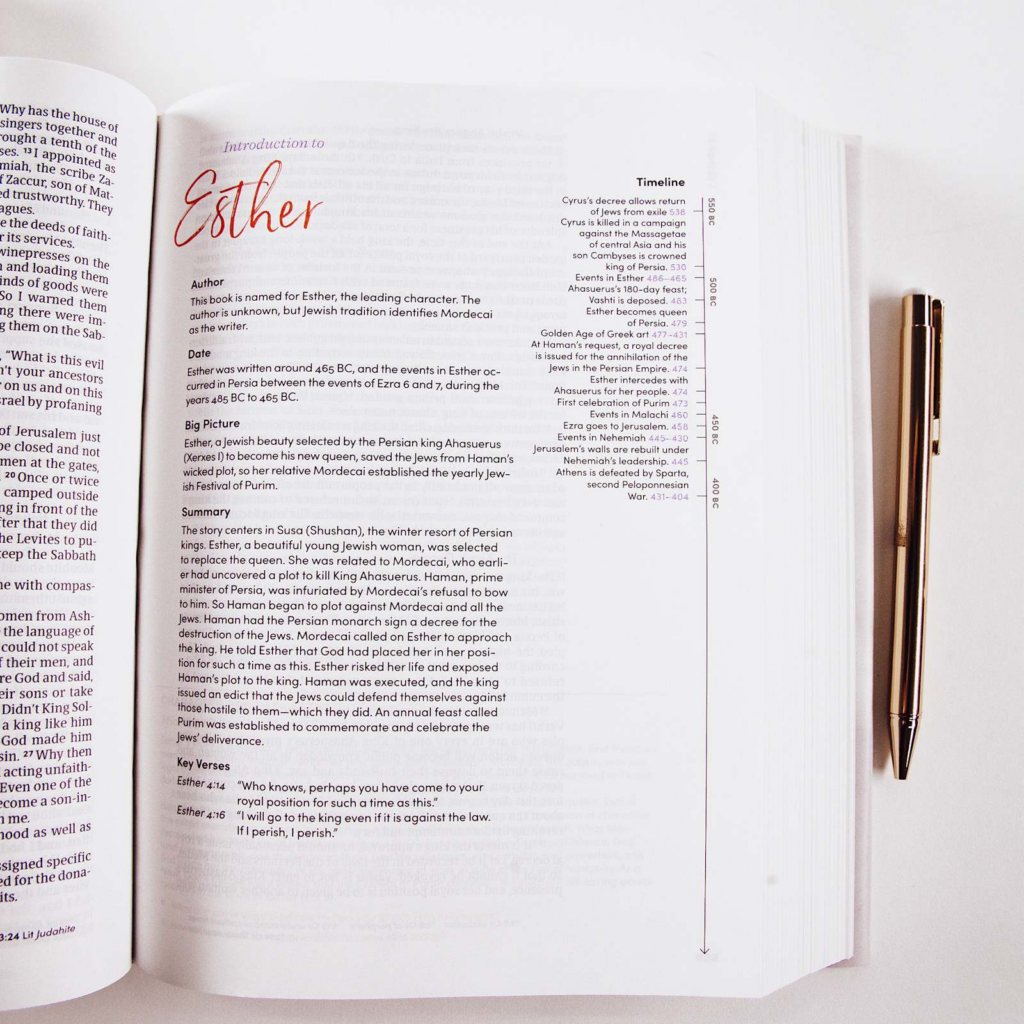 Why has the house of
singers together and
rought a tenth of the
ses. 13 I appointed as
miah, the scribe Za-
f Zaccur, son of Mat-
ed trustworthy. They
agues.
e the deeds of faith-
r its services.
winepresses on the
n and loading them
inds of goods were
So I warned them
ng there were im-
g them on the Sab-
, “What is this evil
n't your ancestors
r on us and on this
srael by profaning
of Jerusalem just
be closed and not
men at the gates,
20 Once or twice
camped outside
ng in front of the
fter that they did
he Levites to pu-
keep the Sabbath
ne with compas-
omen from Ash-
the language of
could not speak
f their men, and
re God and said,
eir sons or take
Didn't King Sol-
a king like him
God made him
sin. 27 Why then
acting unfaith-
Even one of the
ecome a son-in-
n me.
hood as well as
ssigned specific
ed for the dona-
its.
3:24 Lit Judahite
Introduction to
Esther
Author
This book is named for Esther, the leading character. The
author is unknown, but Jewish tradition identifies Mordecai
as the writer.
Date
Esther was written around 465 BC, and the events in Esther oc-
curred in Persia between the events of Ezra 6 and 7, during the
years 485 BC to 465 BC.
Big Picture
Esther, a Jewish beauty selected by the Persian king Ahasuerus
(Xerxes I) to become his new queen, saved the Jews from Haman's
wicked plot, so her relative Mordecai established the yearly Jew-
ish Festival of Purim.
Summary
The story centers in Susa (Shushan), the winter resort of Persian
kings. Esther, a beautiful young Jewish woman, was selected
to replace the queen. She was related to Mordecai, who earli-
er had uncovered a plot to kill King Ahasuerus. Haman, prime
minister of Persia, was infuriated by Mordecai's refusal to bow
to him. So Haman began to plot against Mordecai and all the
Jews. Haman had the Persian monarch sign a decree for the
destruction of the Jews. Mordecai called on Esther to approach
the king. He told Esther that God had placed her in her posi-
tion for such a time as this. Esther risked her life and exposed
Haman's plot to the king. Haman was executed, and the king
issued an edict that the Jews could defend themselves against
those hostile to them—which they did. An annual feast called
Purim was established to commemorate and celebrate the
Jews' deliverance.
Key Verses
Esther 4:14 “Who knows, perhaps you have come to your
royal position for such a time as this.”
Esther 4:16 “I will go to the king even if it is against the law.
If I perish, I perish.”
Timeline
Cyrus's decree allows return
of Jews from exile 538
Cyrus is killed in a campaign
against the Massagetae
of central Asia and his
son Cambyses is crowned
king of Persia. 530
Events in Esther 486–465
Ahasuerus's 180-day feast;
Vashti is deposed. 483
Esther becomes queen
of Persia. 479
Golden Age of Greek art 477–431
At Haman's request, a royal decree
is issued for the annihilation of the
Jews in the Persian Empire. 474
Esther intercedes with
Ahasuerus for her people. 474
First celebration of Purim 473
Events in Malachi 460
Ezra goes to Jerusalem. 458
Events in Nehemiah 445–430
Jerusalem's walls are rebuilt under
Nehemiah's leadership. 445
Athens is defeated by Sparta,
second Peloponnesian
War. 431–404
550 BC
500 BC
450 BC
400 BC